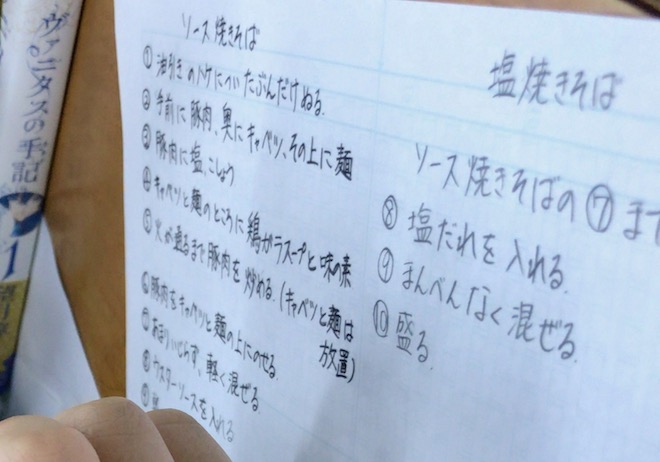 ヴァニタスの手記
1
ソース焼きそば
① 油引きのハケについたぶんだけぬる.
② 手前に豚肉、奥にキャベツ、その上に麺
③ 豚肉に塩、こしょう
④ キャベツと麺のところに鶏がらスープと味の素
⑤ 火が通るまで豚肉を炒める.(キャベツと麺は
放置)
⑥ 豚肉をキャベツと麺の上にのせる.
⑦ あまりいじらず、軽く混ぜる
⑧ ウスターソースを入れる
⑨
塩焼きそば
ソース焼きそばの⑦まで
⑧ 塩だれを入れる.
⑨ まんべんなく混ぜる.
⑩ 盛る.